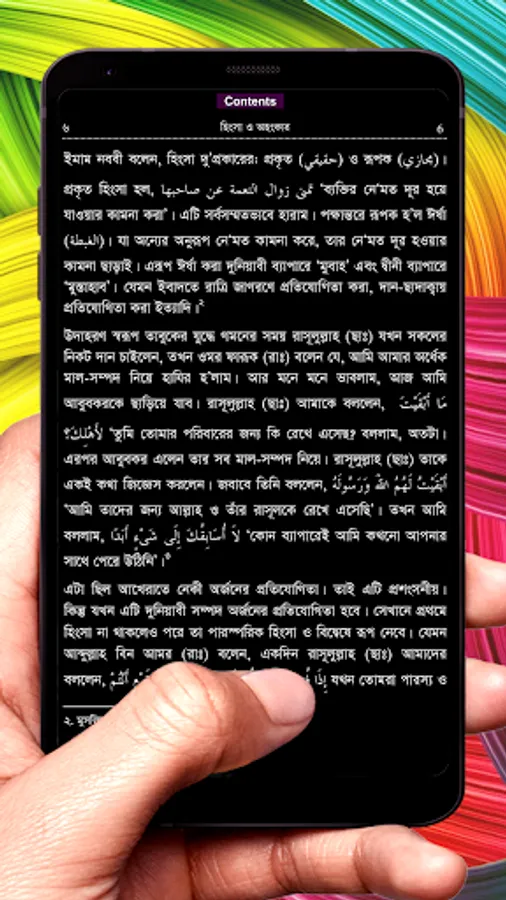 Contents
৬ হিংসা ও অহংকার 6
ইমাম নববী বলেন, হিংসা দু'প্রকারের: প্রকৃত (حقيقي) ও রূপক (مجازي)।
প্রকৃত হিংসা হল, تمنى زوال النعمة عن صاحبها 'ব্যক্তির নে'মত দূর হয়ে
যাওয়ার কামনা করা'। এটি সর্বসম্মতভাবে হারাম। পক্ষান্তরে রূপক হ'ল ঈর্ষা
(الغبطة)। যা অন্যের অনুরূপ নে'মত কামনা করে, তার নে'মত দূর হওয়ার
কামনা ছাড়াই। এরূপ ঈর্ষা করা দুনিয়াবী ব্যাপারে 'মুবাহ' এবং দ্বীনী ব্যাপারে
'মুস্তাহাব'। যেমন ইবাদতে রাত্রি জাগরণে প্রতিযোগিতা করা, দান-ছাদাক্বায়
প্রতিযোগিতা করা ইত্যাদি।২
উদাহরণ স্বরূপ তাবুকের যুদ্ধে গমনের সময় রাসূলুল্লাহ (ছাঃ) যখন সকলের
নিকট দান চাইলেন, তখন ওমর ফারূক (রাঃ) বলেন যে, আমি আমার অর্ধেক
মাল-সম্পদ নিয়ে হাযির হ'লাম। আর মনে মনে ভাবলাম, আজ আমি
আবুবকরকে ছাড়িয়ে যাব। রাসূলুল্লাহ (ছাঃ) আমাকে বললেন, مَا أَبْقَيْتَ
لأَهْلِكَ؟ 'তুমি তোমার পরিবারের জন্য কি রেখে এসেছ? বললাম, অতটা।
এরপর আবুবকর এলেন তার সব মাল-সম্পদ নিয়ে। রাসূলুল্লাহ (ছাঃ) তাকে
একই কথা জিজ্ঞেস করলেন। জবাবে তিনি বললেন, أَبْقَيْتُ لَهُمُ اللهَ وَرَسُولَهُ
'আমি তাদের জন্য আল্লাহ ও তাঁর রাসূলকে রেখে এসেছি'। তখন আমি
বললাম, لاَ أُسَابِقُكَ إِلَى شَىْءٍ أَبَدًا 'কোন ব্যাপারেই আমি কখনো আপনার
সাথে পেরে উঠিনি'।৩
এটা ছিল আখেরাতে নেকী অর্জনের প্রতিযোগিতা। তাই এটি প্রশংসনীয়।
কিন্তু যখন এটি দুনিয়াবী সম্পদ অর্জনের প্রতিযোগিতা হবে। সেখানে প্রথমে
হিংসা না থাকলেও পরে তা পারস্পরিক হিংসা ও বিদ্বেষে রূপ নেবে। যেমন
আব্দুল্লাহ বিন আমর (রাঃ) বলেন, একদিন রাসূলুল্লাহ (ছাঃ) আমাদের
বললেন, إِذَا أَنْتُمْ যখন তোমরা পারস্য ও
২.